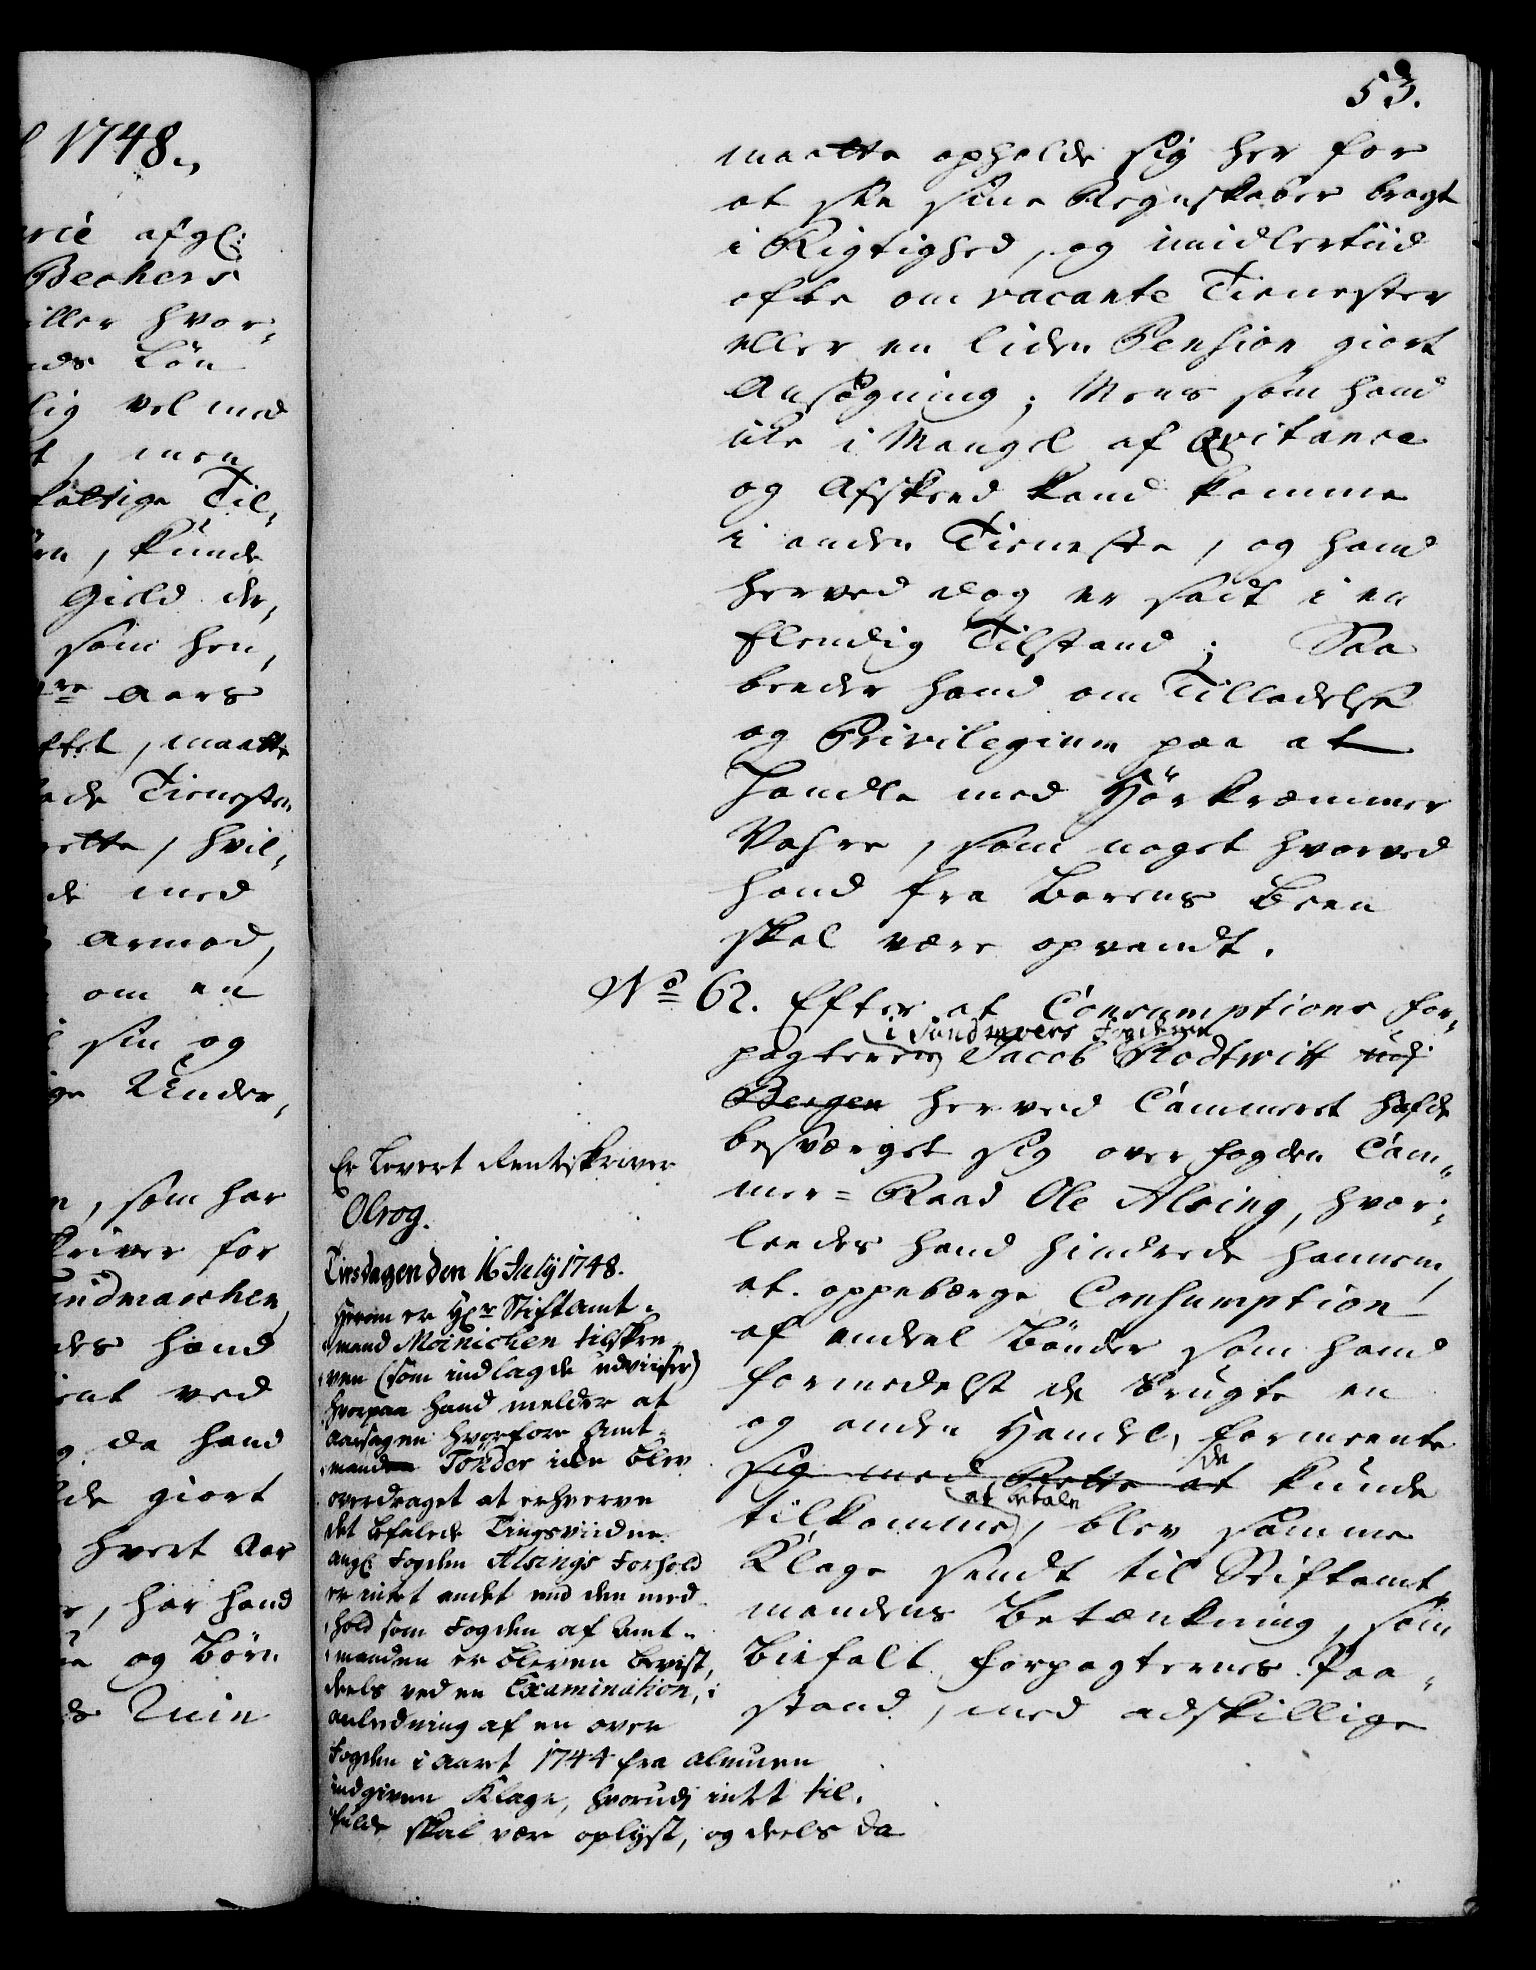 1748.,
rie afgl:
Beckers
iller hvor,
nds Løn
lig vel med
t, men
fattige Til,
en, kunde
Gield der,
som hen,
aars
ftet, maatte
ede Tieneste
rette, hvil,
de med
armod,
om en
sin og
ge Under,
n, som har
skriver for
Findmarchen,
des hand
ient ved
g da hand
de giort
hvert Aar
r, har hand
og Børn
Ruin
53.
maatte opholde sig her for
at see sine Regnskaber bragt
i Rigtighed, og imidlertiid
ofte om vacante Tienester
eller en liden Pension giort
Ansøgning; Mens som hand
icke i Mangel af Qvitance
og Afskeed kand komme
i anden Tieneste, og hand
herved dog er sadt i en
Elendig Tilstand; Saa
beeder hand om Tilladelse
og Privilegium paa at
Handle med Hørkræmmer
Vahre, som noget hvorved
hand fra Barens Been
skal være opvandt.
No 62. Efter at Consumptions For,
i Sundmøers Fogderie
pagteren Jacob Stodtwitt udi
Bergen herved Cammeret hafde
besværget sig over Fogden Cam,
mer=Raad Ole Alsing, hvor,
leedes hand hindrede hannem,
at oppebærge Consumption
af endeel Bønder som hand
formedelst de brugte en
og anden Handel, formeente
de
sig med Rette at kunde
at betale
tilkomme, blev samme
Klage sendt til Stiftamt,
mandens Betænkning, som
biefalt Forpagterens Paa,
stand, med adskillige
Er levert Rentskriver
Olrog.
Tirsdagen den 16 July 1748.
Herom er Hr Stiftamt,
mand Moinichen tilskre,
ven (som indlagde udviiser)
hvorpaa hand melder at
aarsagen hvorfore Amt,
manden Tønder icke blev
overdraget at erhverve
det befalede Tingsvidne
angl Fogden Alsings Forhold
er intet andet end den med,
hold som Fogden af Amt,
manden er bleven beviist,
deels ved en Examination, i
anledning af en over
Fogden i Aaret 1744 fra almuen
indgiven Klage, hvorudj intet til,
fulde skal være oplyst, og deels da